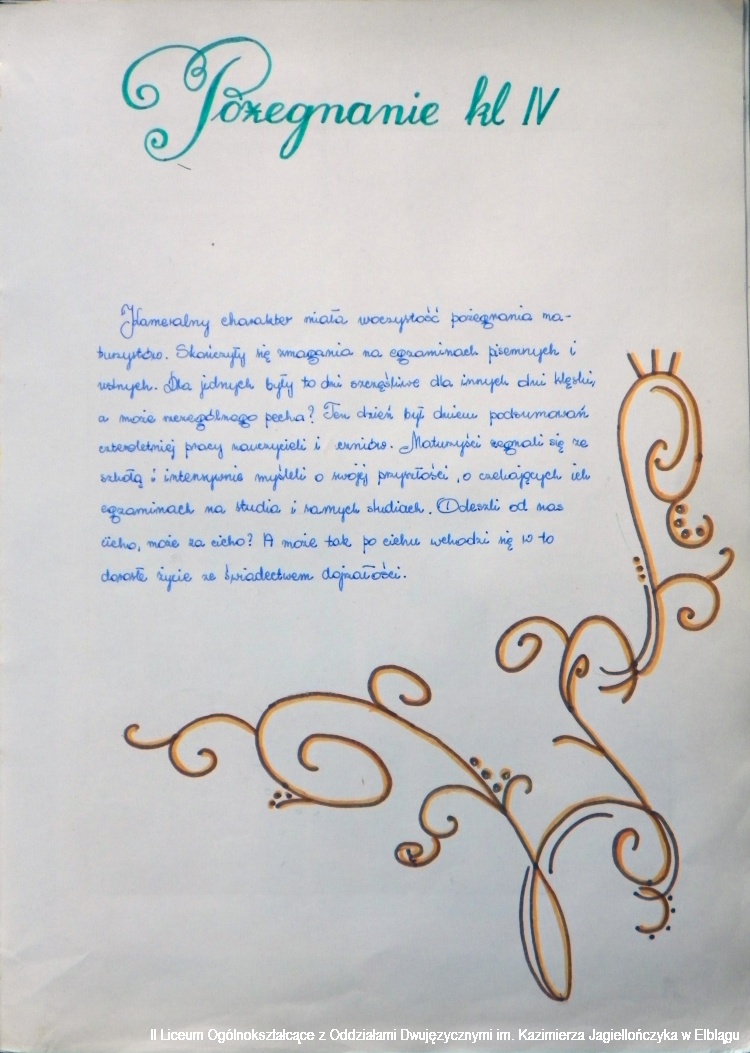 Pożegnanie kl IV
Kameralny charakter miała uroczystość pożegnania ma-
turzystów. Skończyły się zmagania na egzaminach pisemnych i
ustnych. Dla jednych były to dni szczęśliwe dla innych dni klęski,
a może szczególnego pecha? Ten dzień był dniem podsumowań
czteroletniej pracy nauczycieli i uczniów. Maturzyści żegnali się ze
szkołą i intensywnie myśleli o swojej przyszłości, o czekających ich
egzaminach na studia i samych studiach. Odeszli od nas
cicho, może za cicho? A może tak po cichu wchodzi się w to
dorosłe życie ze świadectwem dojrzałości.
II Liceum Ogólnokształcące z Oddziałami Dwujęzycznymi im. Kazimierza Jagiellończyka w Elblągu